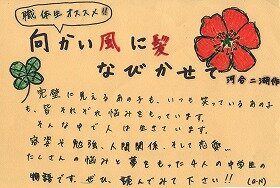 職体生オススメ!!
向かい風に髪
なびかせて
河合二湖作
完璧に見えるあの子も、いつも笑っているあの子
も、皆それぞれ悩みをもっています。
そんな中で人は生きています。
容姿や勉強、人間関係、そして恋愛…
たくさんの悩みと夢をもった4人の中学生の
物語です。ぜひ、読んでみて下さい!!